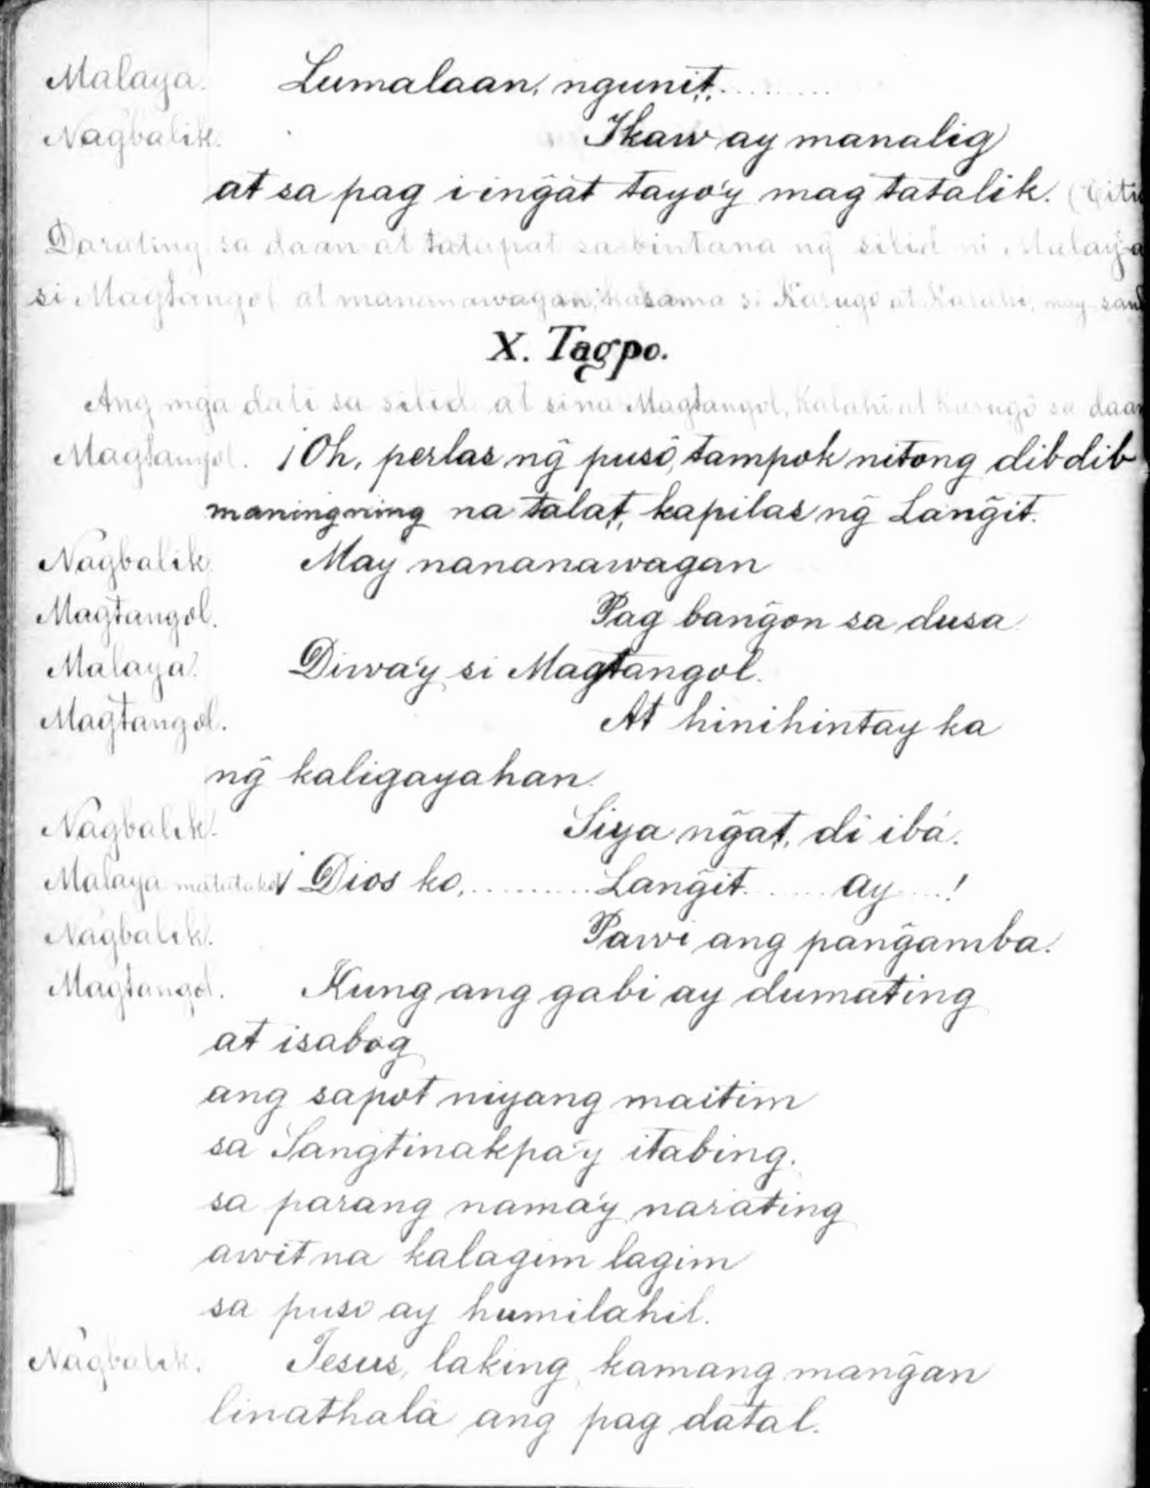 Malaya. Lumalaan, ngunit.........
Nagbalik. Ikaw ay manalig
at sa pag iing̃at tayo'y mag tatalik. (Titi
Darating sa daan at tatapat sa bintana ng̃ silid ni Malaya
si Magtangol at mananawagan, kasama si Kasugo at Kalahi, may
X. Tagpo.
Ang mga dati sa silid at sina Magtangol, Kalahi at Kasugo sa daan
Magtangol. ¡Oh, perlas ng̃ puso, tampok nitong dibdib
maningning na tala't, kapilas ng̃ Lang̃it.
Nagbalik May nananawagan
Magtangol. Pag bang̃on sa dusa
Malaya. Diwa'y si Magtangol.
Magtangol. At hinihintay ka
ng̃ kaligayahan.
Nagbalik. Siya ng̃a't, di ibá.
Malaya matatakot ¡Dios ko,.......... Lang̃it...... ay....!
Nagbalik. Pawi ang pang̃amba.
Magtangol. Kung ang gabi ay dumating
at isabog
ang sapot niyang maitim
sa Sangtinakpa'y itabing.
sa parang nama'y narating
awit na kalagim lagim
sa puso ay humilahil.
Nagbalik. Jesus, laking kamang mang̃an
linathalà ang pag datal.